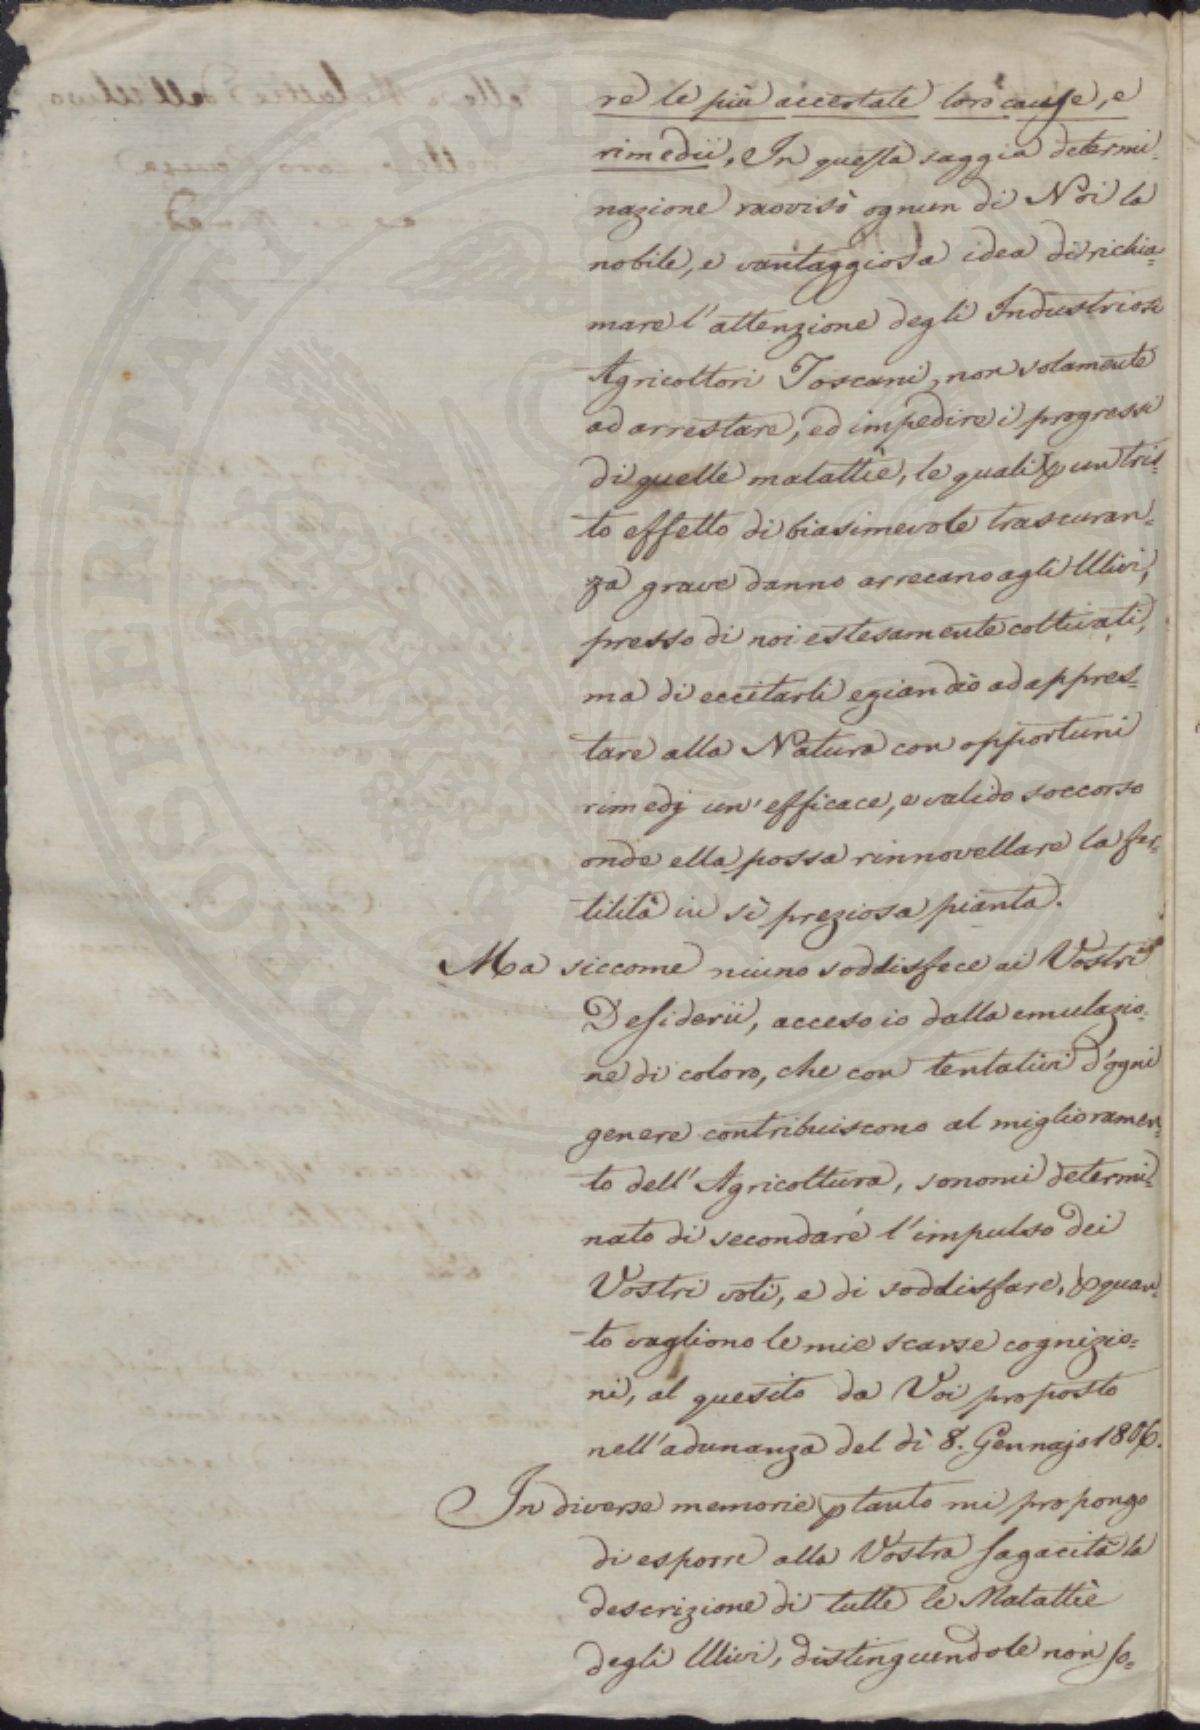 re le più accertate loro cause, e
rimedii. In questa saggia determi-
nazione ravvisò ognun di Noi la
nobile, e vantaggiosa idea di richia-
mare l'attenzione degli Industriosi
Agricoltori Toscani, non solamente
ad arrestare, ed impedire i progressi
di quelle malattie, le quali p un tris-
to effetto di biasimevole trascuran-
za grave danno arrecano agli Ulivi,
presso di noi estesamente coltivati,
ma di eccitarli eziandio ad appres-
tare alla Natura con opportuni
rimedj un'efficace, e valido soccorso
onde ella possa rinnovellare la fer-
tilità in sì preziosa pianta.
Ma siccome niuno soddisfece ai Vostri
Desiderii, acceso io dalla emulazio-
ne di coloro, che con tentativi d'ogni
genere contribuiscono al miglioramen-
to dell'Agricoltura, sonomi determi-
nato di secondare l'impulso dei
Vostri voti, e di soddisfare, p quan-
to vagliono le mie scarse cognizio-
ni, al quesito da Voi proposto
nell'adunanza del dì 8. Gennajo 1806.
In diverse memorie ptanto mi propongo
di esporre alla Vostra sagacità la
descrizione di tutte le Malattie
degli Ulivi, distinguendole non so-